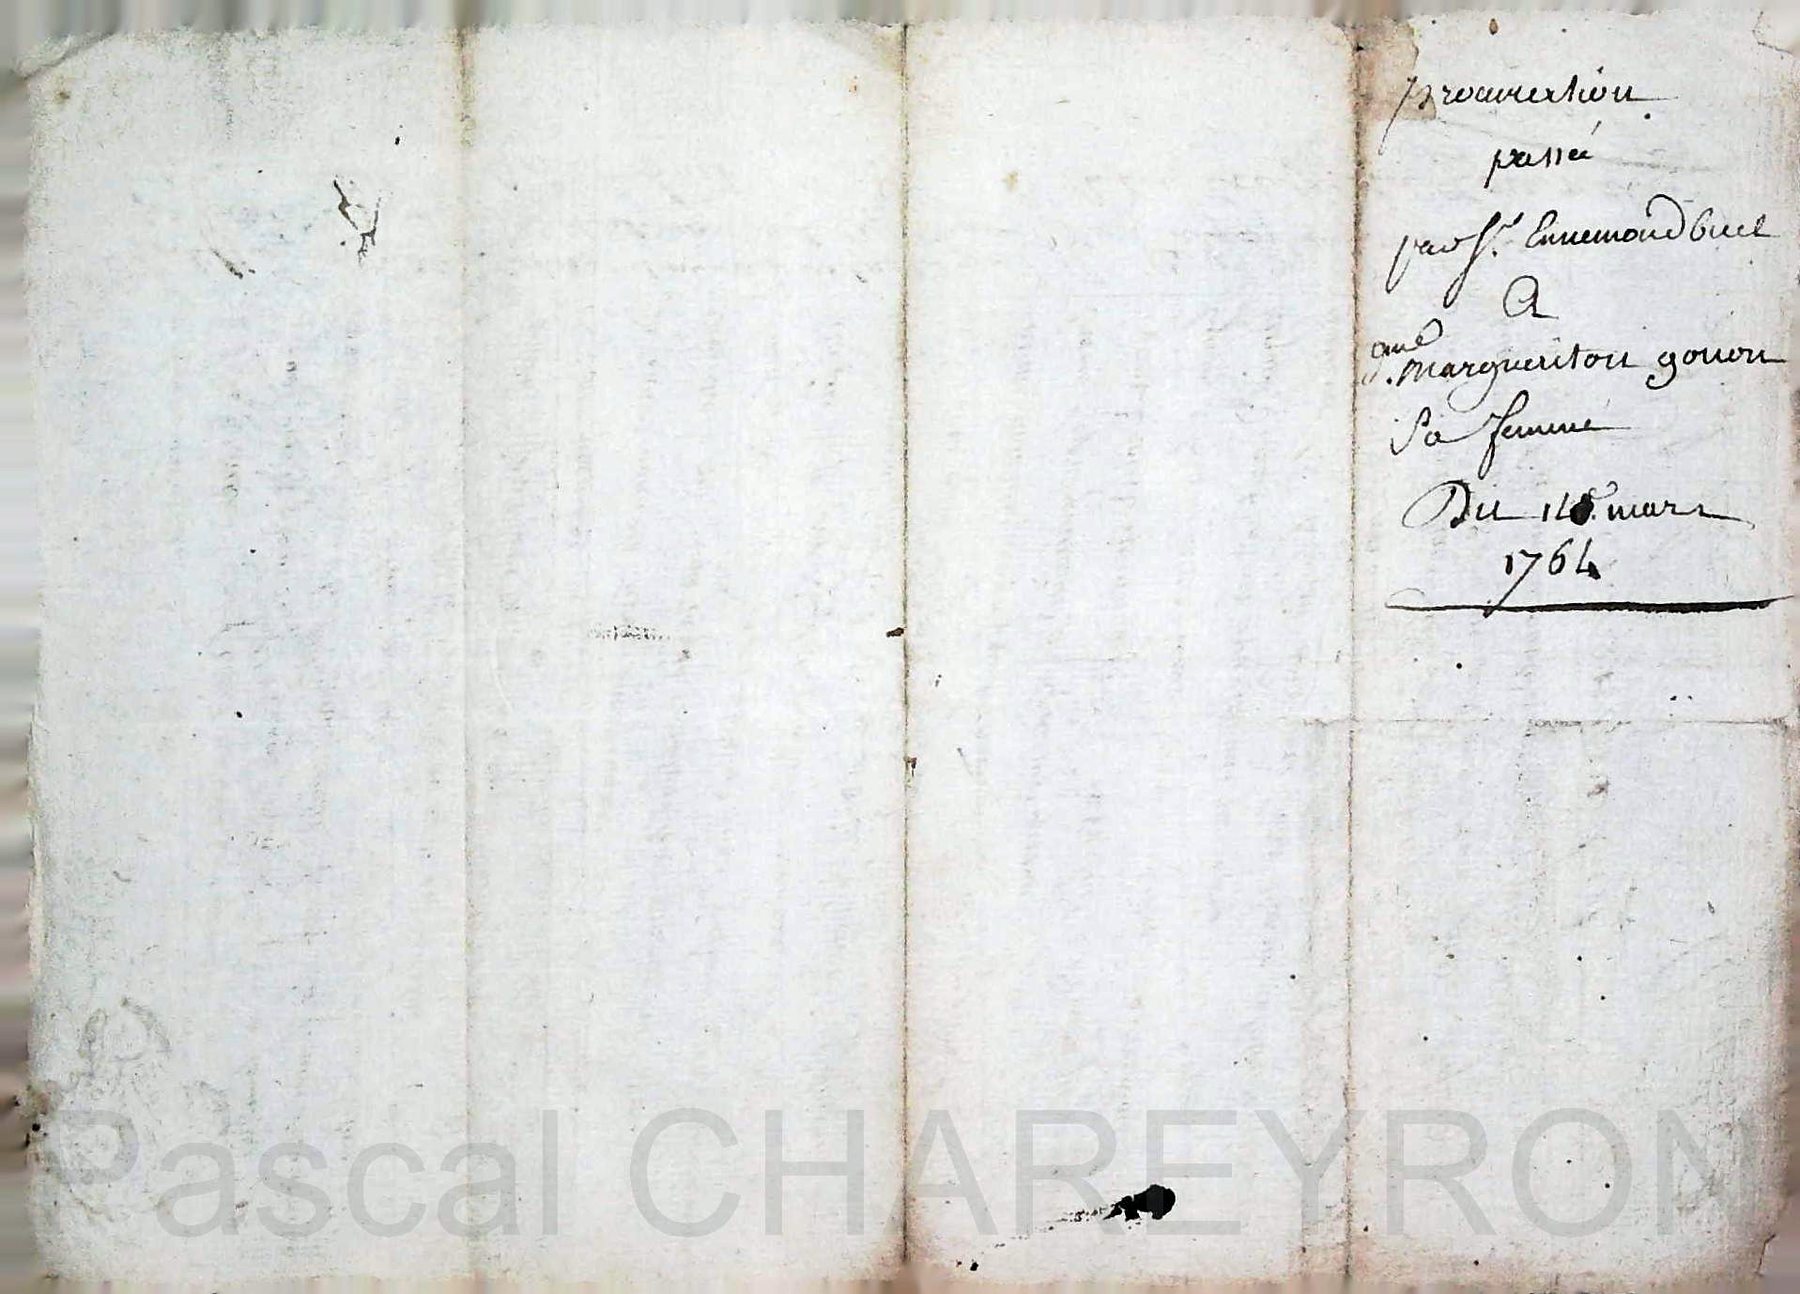 procuration
passée
par Sr. Ennemond buel
A
d. margueriton gonon
Sa femme
Du 14e. mars
1764
Pascal CHAREYRON